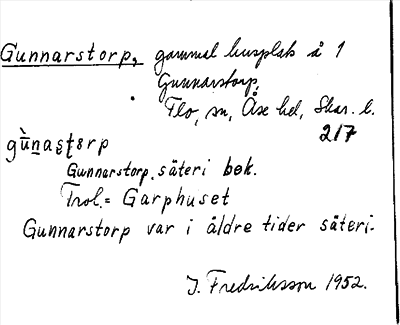 Gunnarstorp, gammal husplats å 1
Gunnarstorp,
Flo, sn, Åse hd, Skar. l.
217
gùnaʂʈɵrp
Gunnarstorp. säteri bok.
Trol. = Garphuset
Gunnarstorp var i äldre tider säteri.
J. Fredriksson 1952.